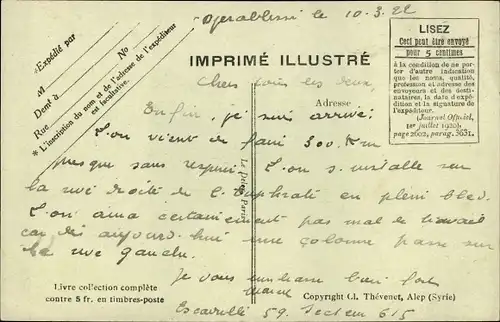 Djerabliss le 10.3.22
LISEZ
Ceci peut être envoyé
pour 5 centimes
à la condition de ne por-
ter d'autre indication
que les noms, qualité,
profession et adresse des
envoyeurs et des desti-
nataires, la date d'expé-
dition et la signature de
l'expéditeur.
(Journal Officiel,
1er juillet 1920)
page 2602, parag. 3631.
Expédié par
M
No
Demt à
Rue
* L'inscription du nom et de l'adresse de l'expéditeur
est facultative.
IMPRIMÉ ILLUSTRÉ
Chers tous les deux,
Adresse
Enfin, je suis arrivé.
L'on vient de faire 300 Km
presque sans respirer. L'on s'installe sur
la rive droite de l'Euphrate en plein bled.
L'on aura certainement pas mal de travail
car dès aujourd'hui une colonne passe sur
la rive gauche.
Je vous embrasse bien fort
59 Secteur 615
Livre collection complète
contre 5 fr. en timbres-poste
Copyright Cl. Thévenet, Alep (Syrie)